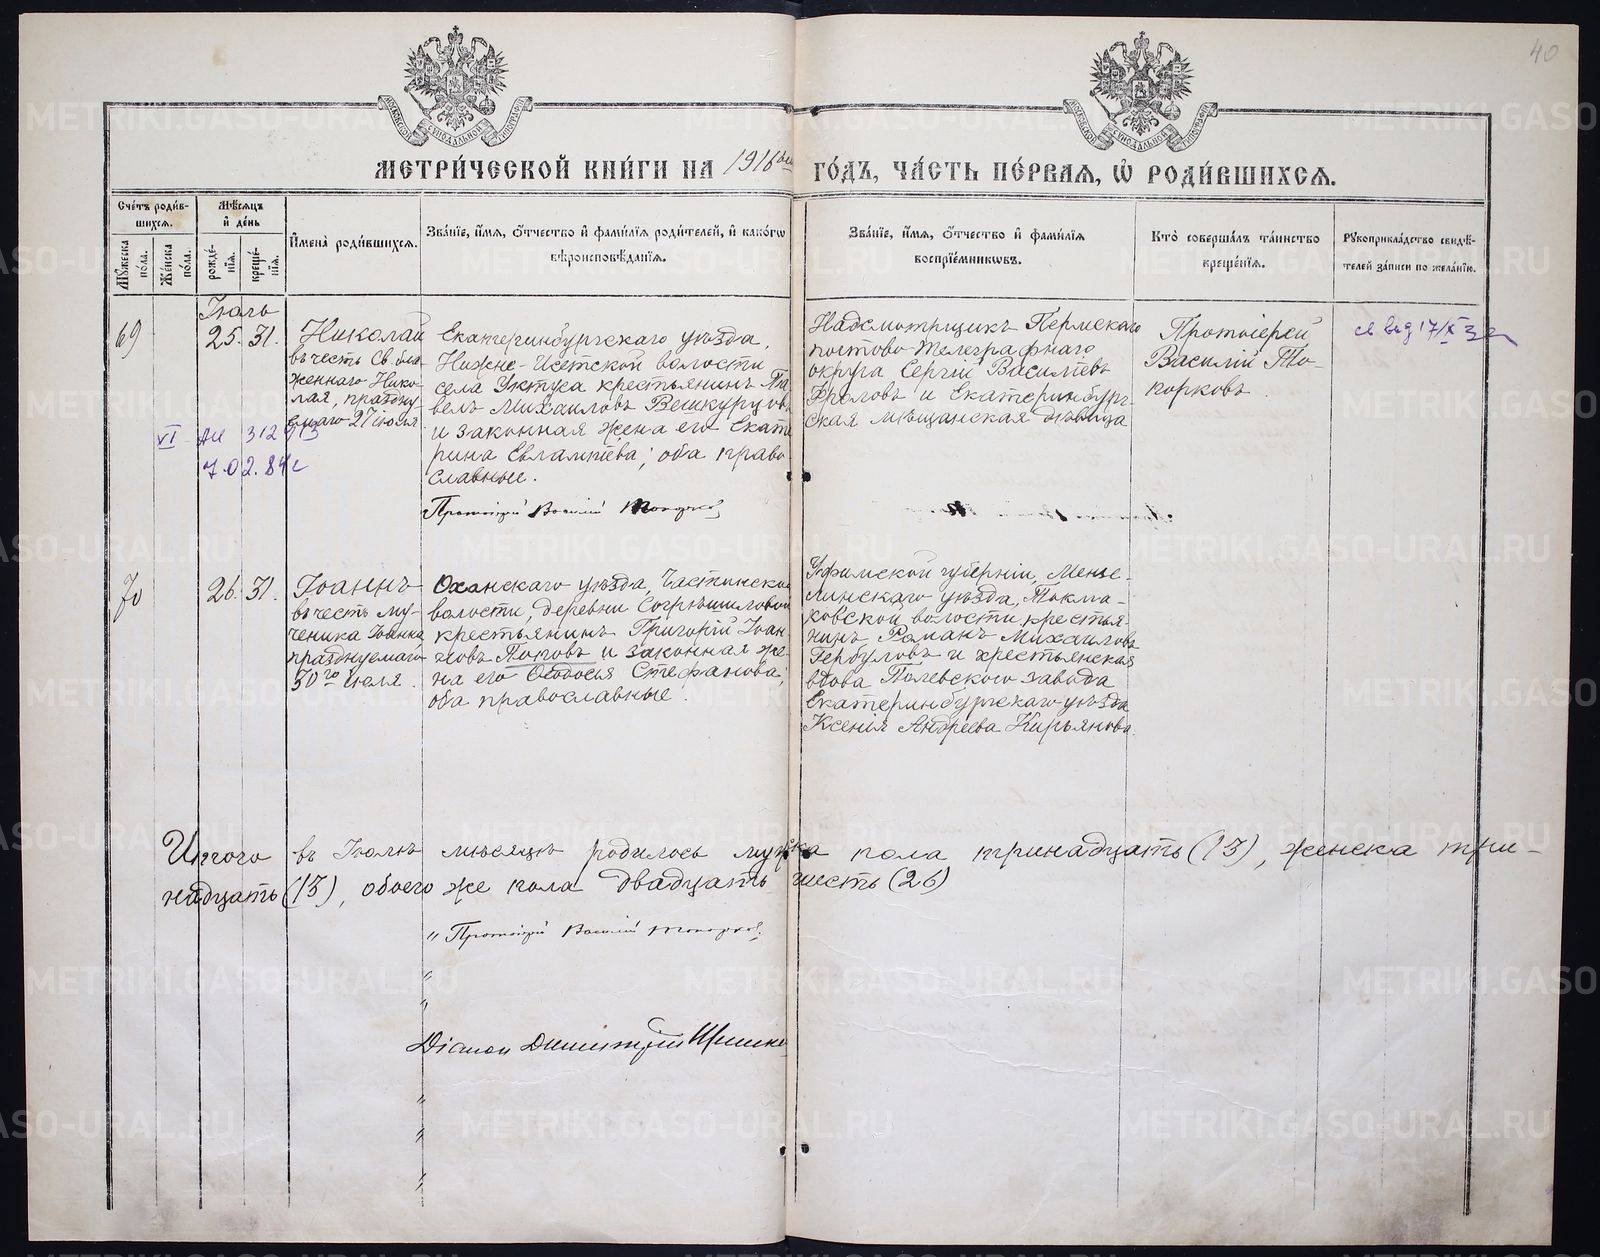 40
МЕТРИЧЕСКОЙ КНИГИ НА 1916 ГОДЪ, ЧАСТЬ ПЕРВАЯ, Ѡ РОДИВШИХСЯ.
Счетъ родив-
шихся.
Мужеска пола.
Женска пола.
Мѣсяцъ и день
рождені́я.
крещенія.
Имена родившихся.
Званіе, имя, отчество и фамилія родителей, и какогѡ
вѣроисповѣданія.
Званіе, имя, отчество и фамилія
воспріемниковъ.
Кто совершалъ таинство
крещенія.
Рукоприкладство свидѣ-
телей записи по желанію.
Іюль
69
25. 31.
Николай
въ честь Св. бла
женнаго Нико-
лая, праздну-
емаго 27 іюля
Екатеринбургскаго уѣзда,
Нижне-Исетской волости
села Уктуса крестьянинъ Па
велъ Михаиловъ Вешкурцовъ
и законная жена его Екате
рина Евлампіева; оба право
славные.
Протоіерей Василій Топорковъ
Надсмотрщикъ Пермскаго
почтово-телеграфнаго
округа Сергій Василіевъ
Фроловъ и Екатеринбург-
ская мѣщанская дѣвица
Протоіерей
Василій То-
порковъ.
VI АИ 312913
7.02.84г
70
26. 31.
Іоаннъ
въ честь му-
ченика Іоанна
празднуемаго
30го іюля.
Оханскаго уѣзда, Частинской
волости, деревни Согрѣшиловой
крестьянинъ Григорій Іоан-
новъ Поповъ и законная же-
на его Ѳеодосія Стефанова;
оба православные.
Уфимской губерніи, Мензе-
линскаго уѣзда, Токма-
ковской волости крестья-
нинъ Романъ Михаиловъ
Гербуловъ и крестьянская
вдова Полевского завода
Екатеринбургскаго уѣзда
Ксенія Андреева Кирьянова.
Итого въ Іюлѣ мѣсяцѣ родилось мужска пола тринадцать (13), женска три-
надцать (13), обоего же пола двадцать шесть (26)
" Протоіерей Василій Топорковъ
"
"
Діаконъ Димитрій
"
"
"